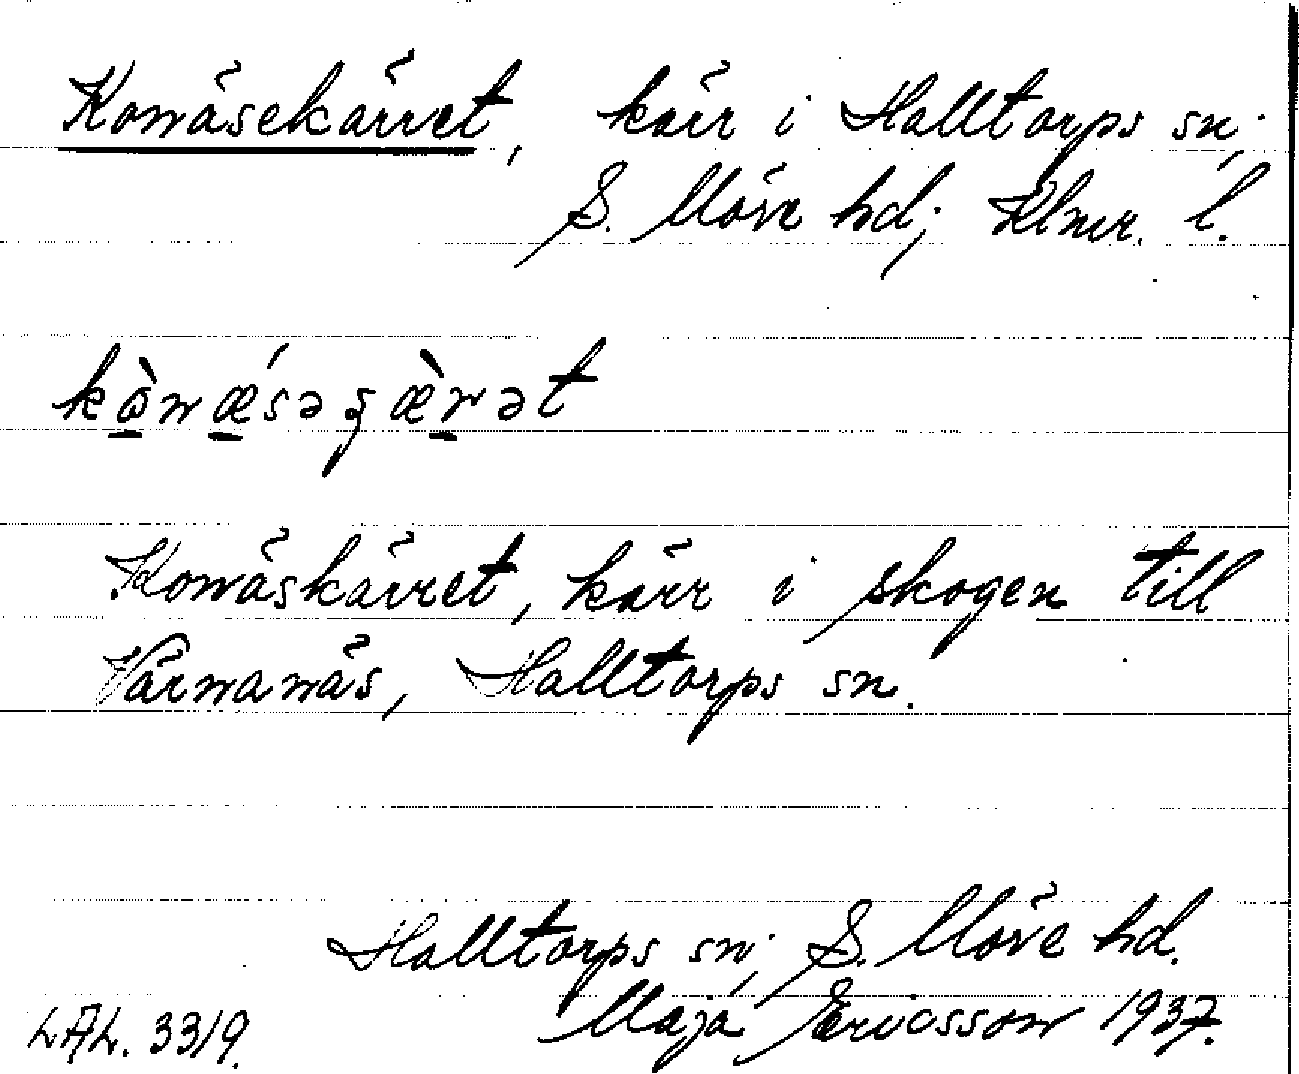 Konäsekärret, kärr i Halltorps sn,
S. Möre hd; Klmr. l.
Konäskärret, kärr i skogen till
Värnanäs, Halltorps sn.
Halltorps sn, S. Möre hd.
Maja Ericsson 1937.
LAL. 3319.